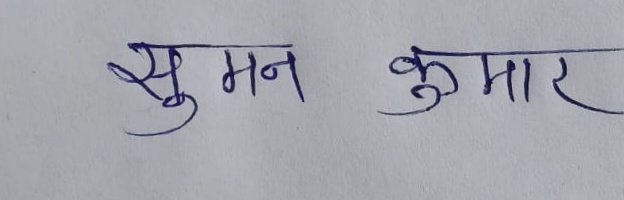 सुमन कुमार